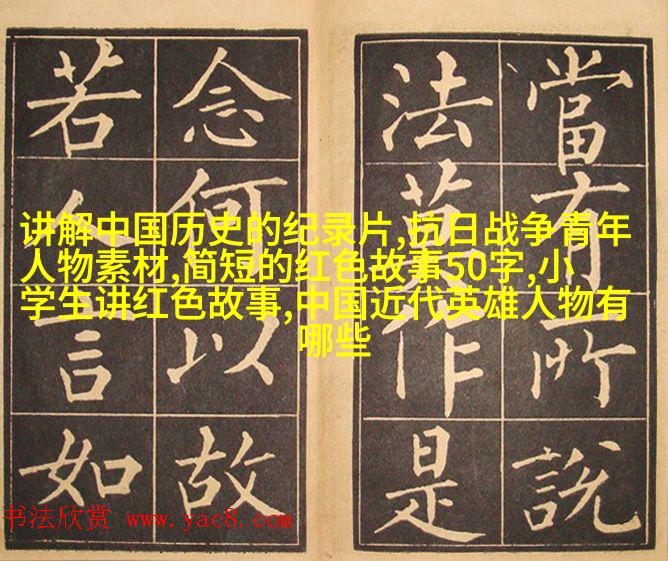 當有所說
法莫作是
念何以故
若人言如
讲解中国历史的纪录片,抗日战争青年
人物素材,简短的红色故事50字,小
学生讲红色故事,中国近代英雄人物有
哪些
书法欣赏 www.yac8.com